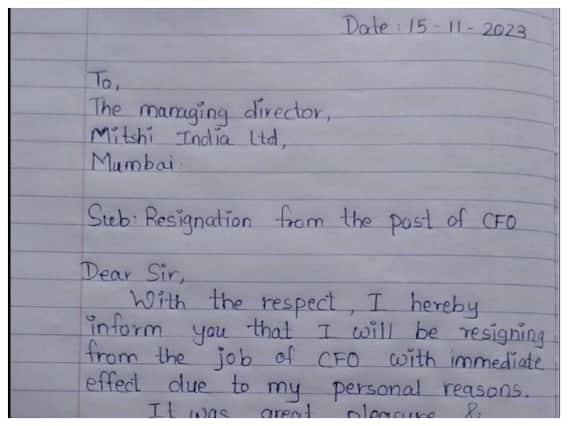 Date : 15-11-2023
To,
The managing director,
Mitshi India Ltd,
Mumbai.
Sub: Resignation from the post of CFO
Dear Sir,
With the respect, I hereby
inform you that I will be resigning
from the job of CFO with immediate
effect due to my personal reasons.
It was great pleasure &